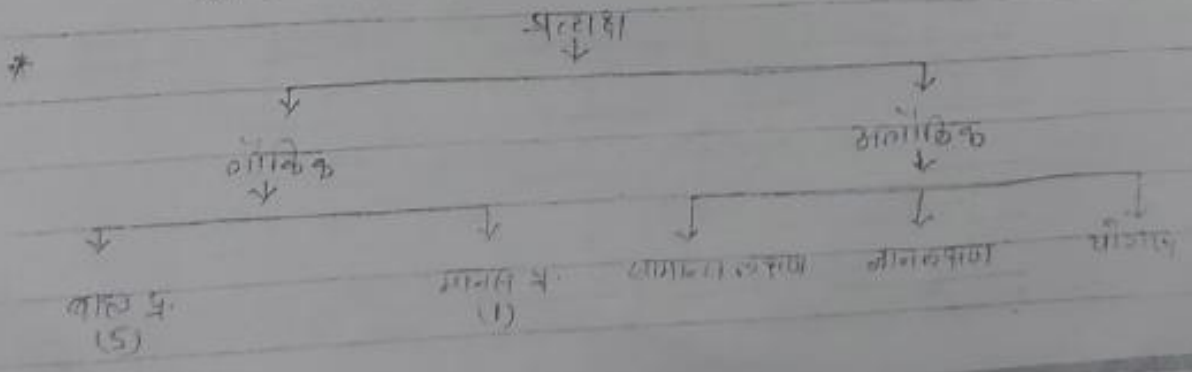 * प्रत्यक्ष
लौकिक अलौकिक
बाह्य प्र. मानस प्र. सामान्य लक्षण ज्ञानलक्षण योगज
(5) (1)